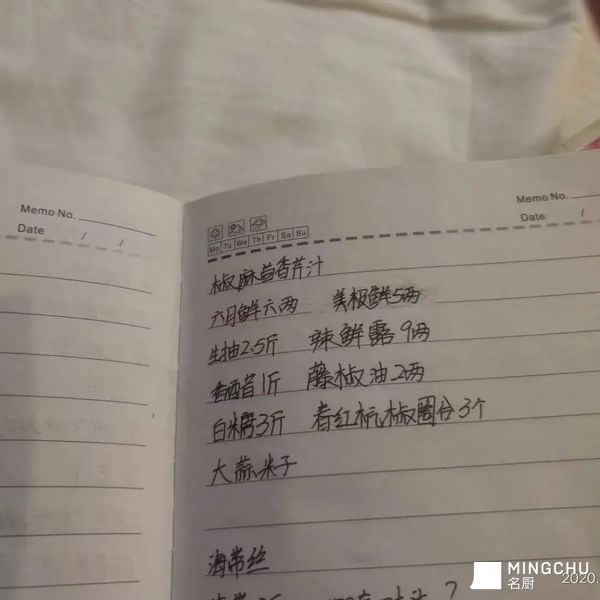 Memo No.
Date / /
Memo No.
Date /
Mo Tu We Th Fr Sa Su
椒麻茴香芹汁
六月鲜六两 美极鲜5两
生抽2.5斤 辣鲜露9两
香酉昔1斤 藤椒油2两
白糖3斤 春红杭椒圈各3个
大蒜米子
海带丝
MINGCHU
名厨 2020.